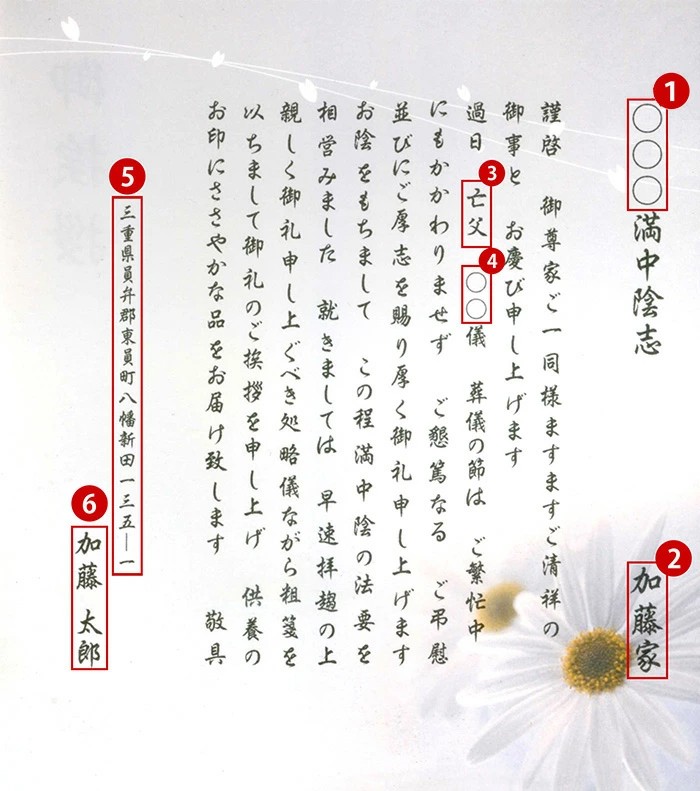 1
〇〇〇満中陰志
2
加藤家
謹啓 御尊家ご一同様ますますご清祥の
御事と お慶び申し上げます
3
4
過日 亡父 〇〇儀 葬儀の節は ご繁忙中
にもかかわりませず ご懇篤なる ご弔慰
並びにご厚志を賜り厚く御礼申し上げます
お陰をもちまして この程満中陰の法要を
相営みました 就きましては 早速拝趨の上
親しく御礼申し上ぐべき処略儀ながら粗箋を
以ちまして御礼のご挨拶を申し上げ 供養の
お印にささやかな品をお届け致します 敬具
5
三重県員弁郡東員町八幡新田一三五―一
6
加藤 太郎